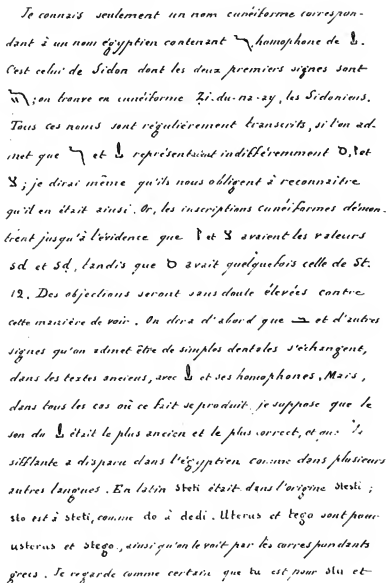 Je connais seulement un nom cunéiforme correspon-
dant à un nom égyptien contenant homophone de .
C'est celui de Sidon dont les deux premiers signes sont
; on trouve en cunéiforme Zi-du-na-ay, les Sidoniens.
Tous ces noms sont régulièrement transcrits, si l'on ad-
met que et représentaient indifféremment ס, et
צ; je dirai même qu'ils nous obligent à reconnaitre
qu'il en était ainsi. Or, les inscriptions cunéiformes démon-
trent jusqu'à l'évidence que et צ avaient les valeurs
sd et sd, tandis que ס avait quelquefois celle de St.
12. Des objections seront sans doute élevées contre
cette manière de voir. On dira d'abord que et d'autres
signes qu'on admet être de simples dentales s'échangent,
dans les textes anciens, avec et ses homophones. Mais,
dans tous les cas où ce fait se produit, je suppose que le
son du était le plus ancien et le plus correct, et que la
sifflante a disparu dans l'égyptien comme dans plusieurs
autres langues. En latin steti était dans l'origine stesti;
sto est à steti, comme do à dedi. Uterus et tego sont pour
usterus et stego, ainsi qu'on le voit par les correspondants
grecs. Je regarde comme certain que tu est pour stu et